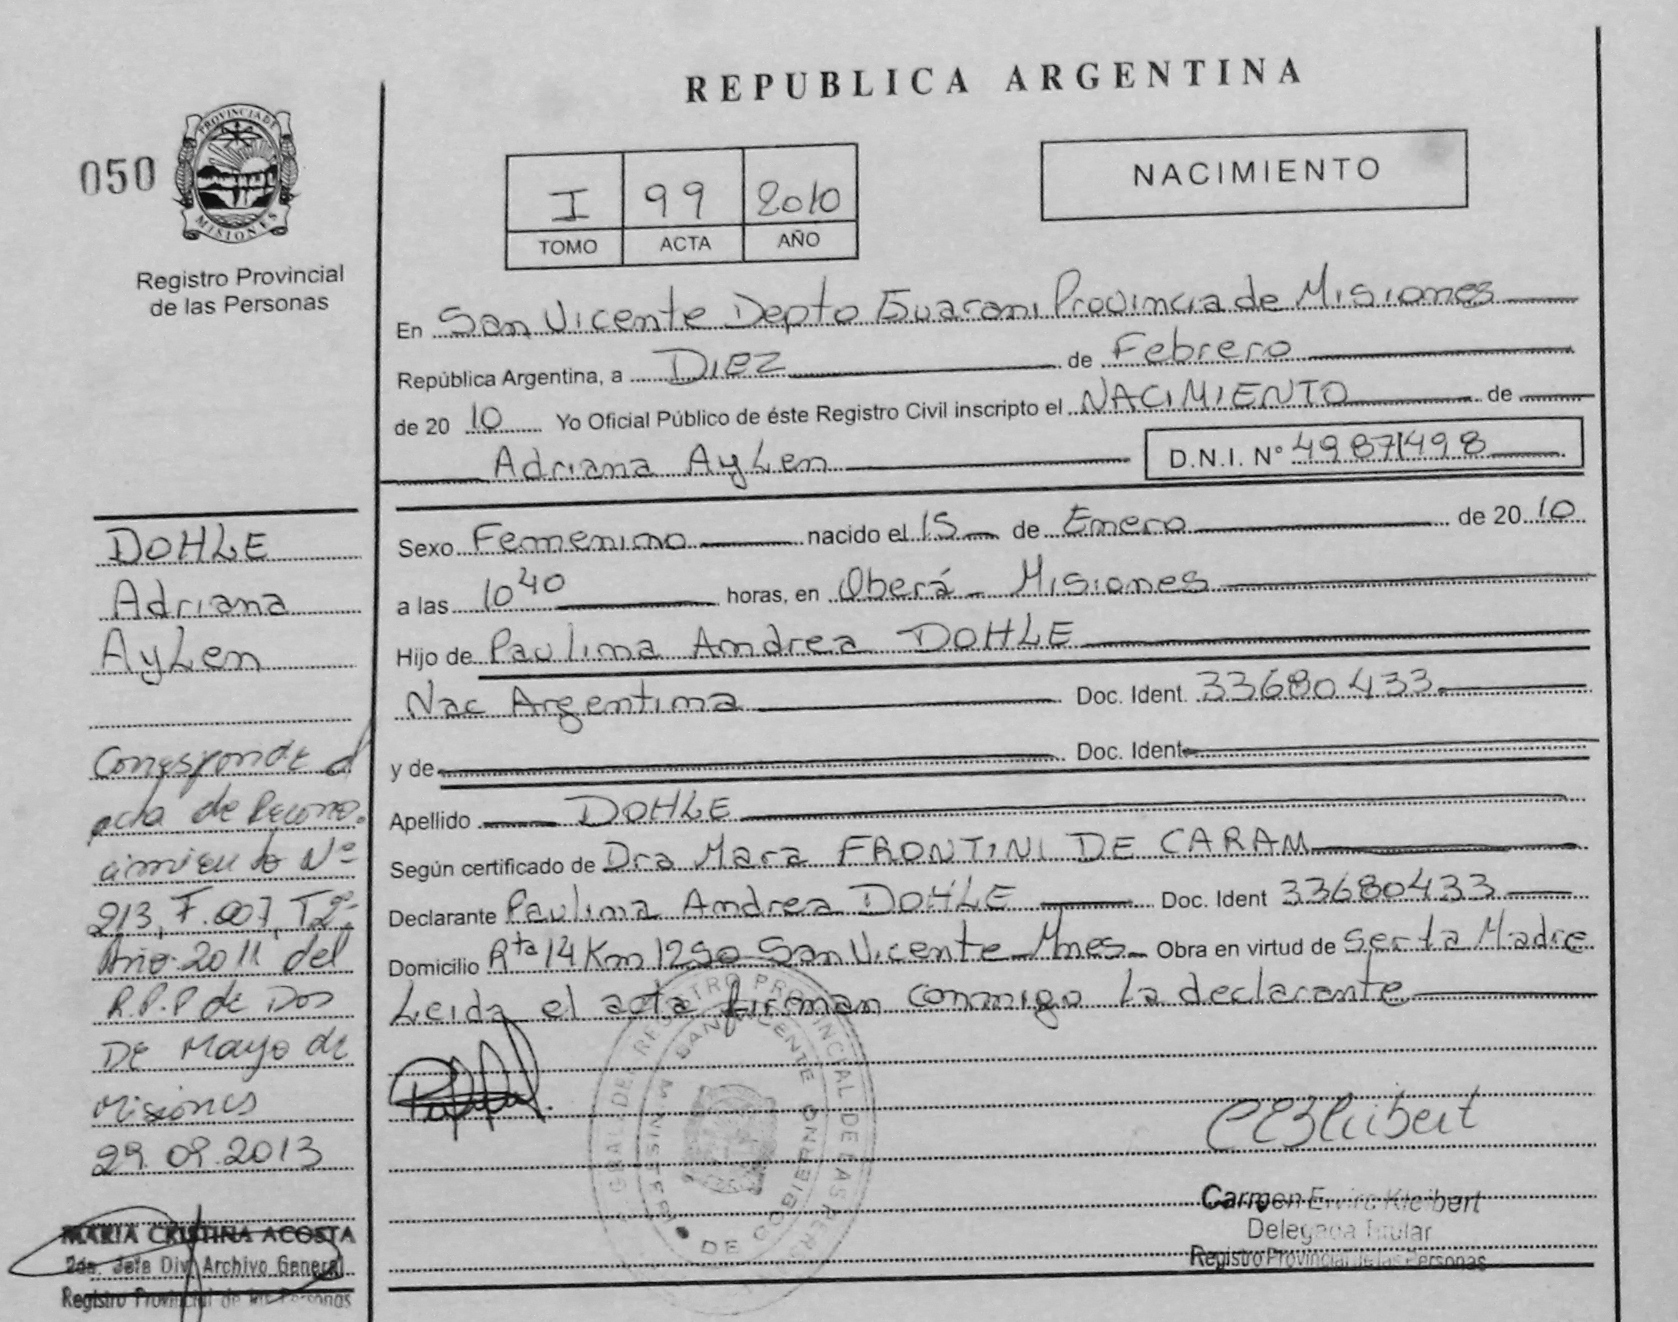 REPUBLICA ARGENTINA
050
PROVINCIA DE
MISIONES
Registro Provincial
de las Personas
I 99 2010
TOMO ACTA AÑO
NACIMIENTO
En San Vicente Depto Guarani Provincia de Misiones
República Argentina, a Diez de Febrero
de 2010 Yo Oficial Público de éste Registro Civil inscripto el NACIMIENTO de
Adriana Aylen D.N.I. N° 49871498
Sexo Femenino nacido el 15 de Enero de 2010
a las 10 40 horas, en Oberá - Misiones
Hijo de Paulina Andrea DOHLE
Nac Argentina Doc. Ident. 33680433
y de Doc. Ident
Apellido DOHLE
Según certificado de Dra Mara FRONTINI DE CARAM
Declarante Paulina Andrea DOHLE Doc. Ident 33680433
Domicilio Rta 14 Km 1290 San Vicente Mnes Obra en virtud de ser la Madre
Leida el acta firman conmigo la declarante
DOHLE
Adriana
Aylen
Corresponde al
acta de Recono-
cimiento Nº
213, F.007, T2º
Año 2011 del
R.P.P de Dos
De Mayo de
Misiones
29.09.2013
MARIA CRISTINA ACOSTA
2da. Jefa Div. Archivo General
Registro Provincial de las Personas
Carmen Elvira Kleibert
Delegada Titular
Registro Provincial de las Personas